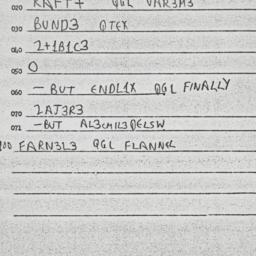 020 KAFT+ QGL VAR3M3
030 BUND3 QTEX
040 2+1B1C3
050 O
060 — BUT ENDL1X QGL FINALLY
070 2AT3R3
071 -BUT AL3CM1L3QELSW
100 FARN3L3 QGL FLANNEL